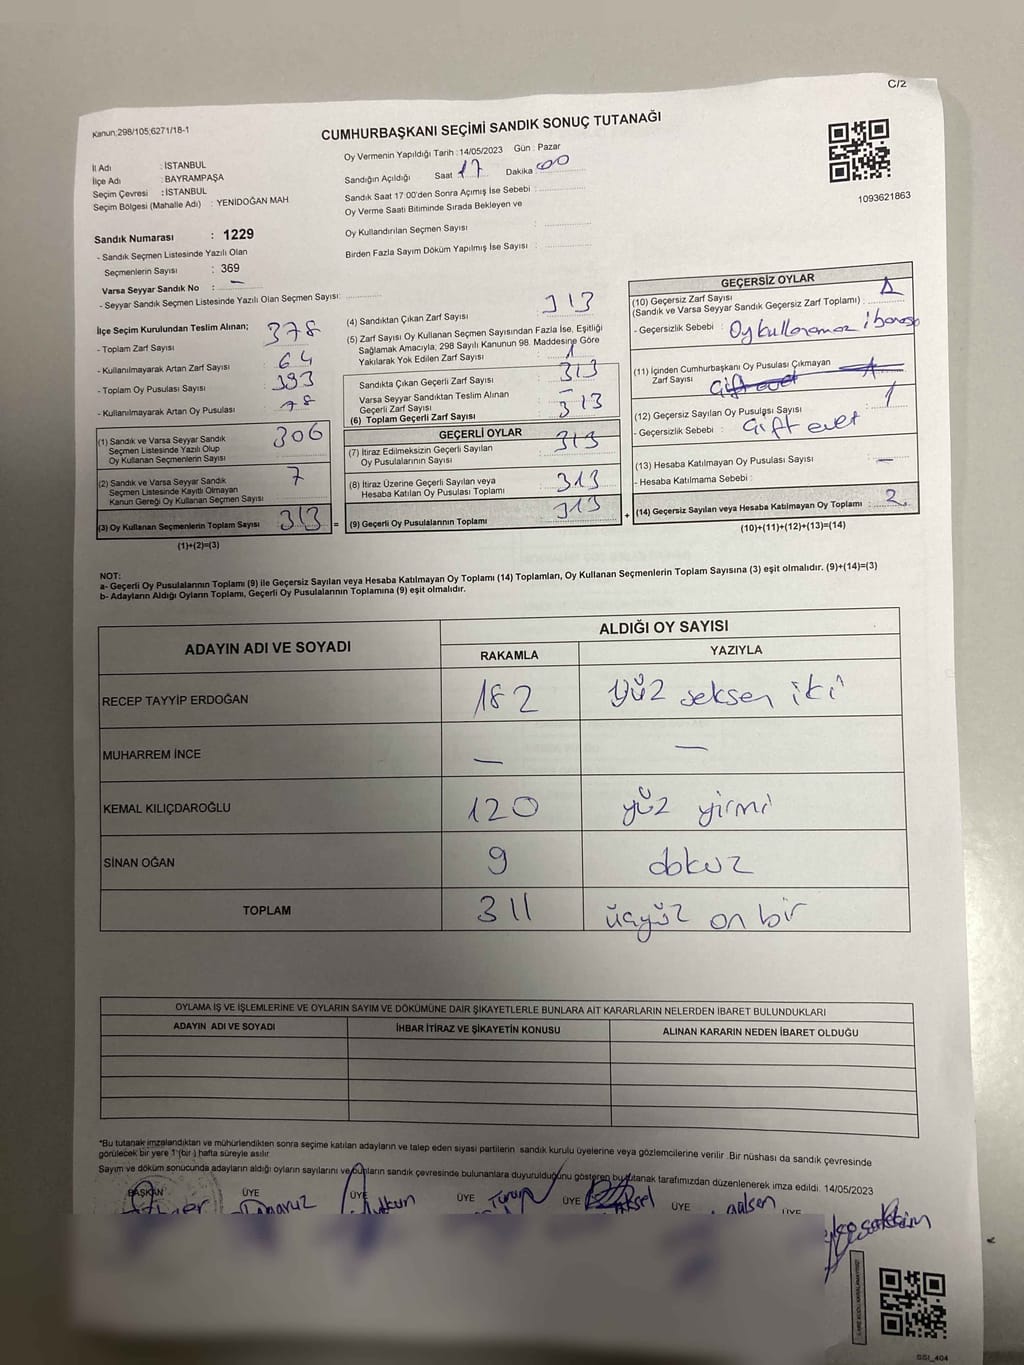 C/2
Kanun;298/105;6271/18-1
CUMHURBAŞKANI SEÇİMİ SANDIK SONUÇ TUTANAĞI
İl Adı : İSTANBUL
İlçe Adı : BAYRAMPAŞA
Seçim Çevresi : İSTANBUL
Seçim Bölgesi (Mahalle Adı) : YENİDOĞAN MAH
Oy Vermenin Yapıldığı Tarih :14/05/2023 Gün : Pazar
Sandığın Açıldığı Saat 17 Dakika 00
Sandık Saat 17 00'den Sonra Açımış İse Sebebi :
Oy Verme Saati Bitiminde Sırada Bekleyen ve
Oy Kullandırılan Seçmen Sayısı :
Birden Fazla Sayım Döküm Yapılmış İse Sayısı :
1093621863
Sandık Numarası : 1229
- Sandık Seçmen Listesinde Yazılı Olan
Seçmenlerin Sayısı : 369
Varsa Seyyar Sandık No : —
- Seyyar Sandık Seçmen Listesinde Yazılı Olan Seçmen Sayısı:
İlçe Seçim Kurulundan Teslim Alınan;
- Toplam Zarf Sayısı : 378
- Kullanılmayarak Artan Zarf Sayısı : 64
- Toplam Oy Pusulası Sayısı : 393
- Kullanılmayarak Artan Oy Pusulası : 78
(1) Sandık ve Varsa Seyyar Sandık
Seçmen Listesinde Yazılı Olup
Oy Kullanan Seçmenlerin Sayısı
306
(2) Sandık ve Varsa Seyyar Sandık
Seçmen Listesinde Kayıtlı Olmayan
Kanun Gereği Oy Kullanan Seçmen Sayısı
7
(3) Oy Kullanan Seçmenlerin Toplam Sayısı 313 =
(1)+(2)=(3)
(4) Sandıktan Çıkan Zarf Sayısı : 313
(5) Zarf Sayısı Oy Kullanan Seçmen Sayısından Fazla İse, Eşitliği
Sağlamak Amacıyla, 298 Sayılı Kanunun 98. Maddesine Göre
Yakılarak Yok Edilen Zarf Sayısı : 1
Sandıkta Çıkan Geçerli Zarf Sayısı : 313
Varsa Seyyar Sandıktan Teslim Alınan
Geçerli Zarf Sayısı : —
(6) Toplam Geçerli Zarf Sayısı : 313
GEÇERLİ OYLAR
(7) İtiraz Edilmeksizin Geçerli Sayılan
Oy Pusulalarının Sayısı : 313
(8) İtiraz Üzerine Geçerli Sayılan veya
Hesaba Katılan Oy Pusulası Toplamı : 313
(9) Geçerli Oy Pusulalarının Toplamı : 313 +
GEÇERSİZ OYLAR
(10) Geçersiz Zarf Sayısı
(Sandık ve Varsa Seyyar Sandık Geçersiz Zarf Toplamı) :
- Geçersizlik Sebebi : Oy kullanamaz ibaresi
(11) İçinden Cumhurbaşkanı Oy Pusulası Çıkmayan
Zarf Sayısı :
(12) Geçersiz Sayılan Oy Pusulası Sayısı : 1
- Geçersizlik Sebebi : Çift evet
(13) Hesaba Katılmayan Oy Pusulası Sayısı : —
- Hesaba Katılmama Sebebi :
(14) Geçersiz Sayılan veya Hesaba Katılmayan Oy Toplamı : 2
(10)+(11)+(12)+(13)=(14)
NOT:
a- Geçerli Oy Pusulalarının Toplamı (9) ile Geçersiz Sayılan veya Hesaba Katılmayan Oy Toplamı (14) Toplamları, Oy Kullanan Seçmenlerin Toplam Sayısına (3) eşit olmalıdır. (9)+(14)=(3)
b- Adayların Aldığı Oyların Toplamı, Geçerli Oy Pusulalarının Toplamına (9) eşit olmalıdır.
ADAYIN ADI VE SOYADI
ALDIĞI OY SAYISI
RAKAMLA YAZIYLA
RECEP TAYYİP ERDOĞAN 182 yüz seksen iki
MUHARREM İNCE — —
KEMAL KILIÇDAROĞLU 120 yüz yirmi
SİNAN OĞAN 9 dokuz
TOPLAM 311 üçyüz on bir
OYLAMA İŞ VE İŞLEMLERİNE VE OYLARIN SAYIM VE DÖKÜMÜNE DAİR ŞİKAYETLERLE BUNLARA AİT KARARLARIN NELERDEN İBARET BULUNDUKLARI
ADAYIN ADI VE SOYADI İHBAR İTİRAZ VE ŞİKAYETİN KONUSU ALINAN KARARIN NEDEN İBARET OLDUĞU
*Bu tutanak imzalandıktan ve mühürlendikten sonra seçime katılan adayların ve talep eden siyasi partilerin sandık kurulu üyelerine veya gözlemcilerine verilir. Bir nüshası da sandık çevresinde
görülecek bir yere 1 (bir ) hafta süreyle asılır
Sayım ve döküm sonucunda adayların aldığı oyların sayılarını ve bunların sandık çevresinde bulunanlara duyurulduğunu gösteren bu tutanak tarafımızdan düzenlenerek imza edildi. 14/05/2023
BAŞKAN ÜYE ÜYE ÜYE ÜYE ÜYE ÜYE
SSI_404